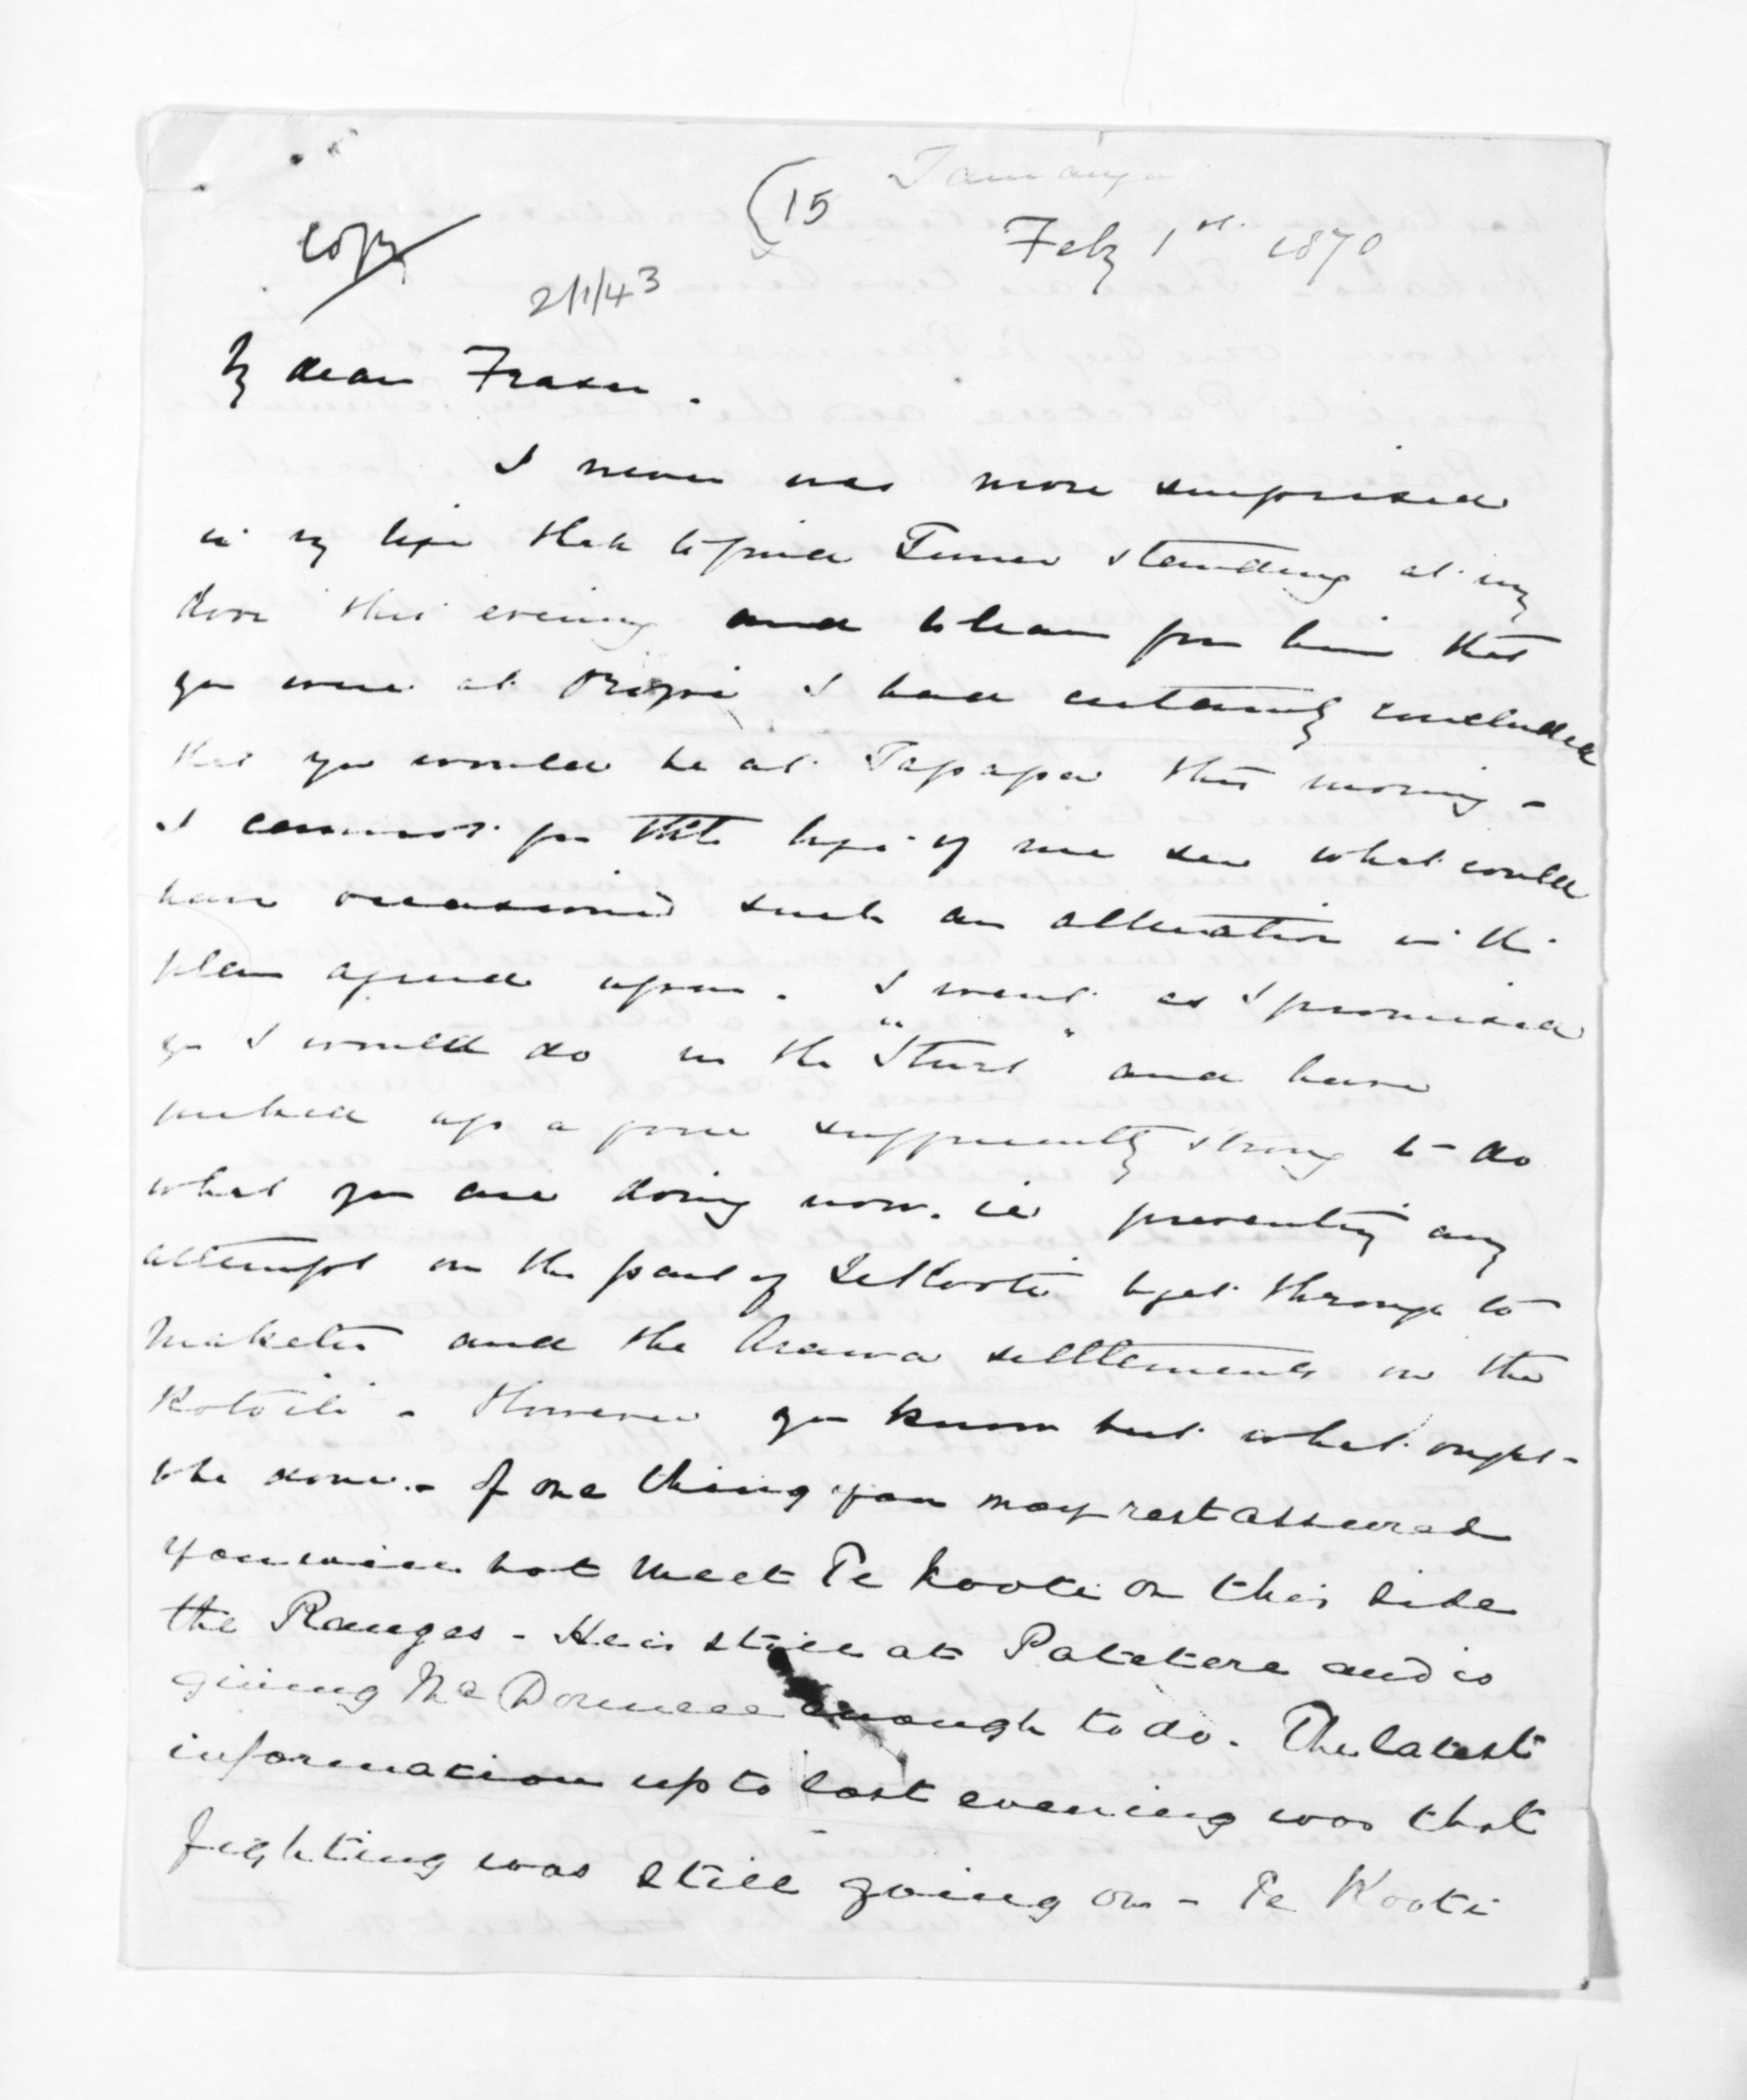 (15 Tauranga
Feby 1st. 1870
Copy
2/1/43
My dear Fraser.
I never was more surprised
in my life than to find Turner standing at my
door this evening and to learn from him that
you were at Oropi I had certainly concluded
that you would be at Tapapa this morning -
I cannot for the life of me see what could
have occasioned such an alteration in the
plan agreed upon. I went as I promised
you I would do in the "Sturt" and have
picked up a force sufficiently strong to do
what you are doing now. ie preventing any
attempt on the part of Te Kooti to get through to
Maketu and the Arawa settlements in the
Rotoiti - However you know best what ought
to be done. - Of one thing you may rest assured
you will not meet Te Kooti on this side
the Ranges - He is still at Patetere and is
giving McDonnell enough to do. The latest
information up to last evening was that
fighting was still going on - Te Kooti